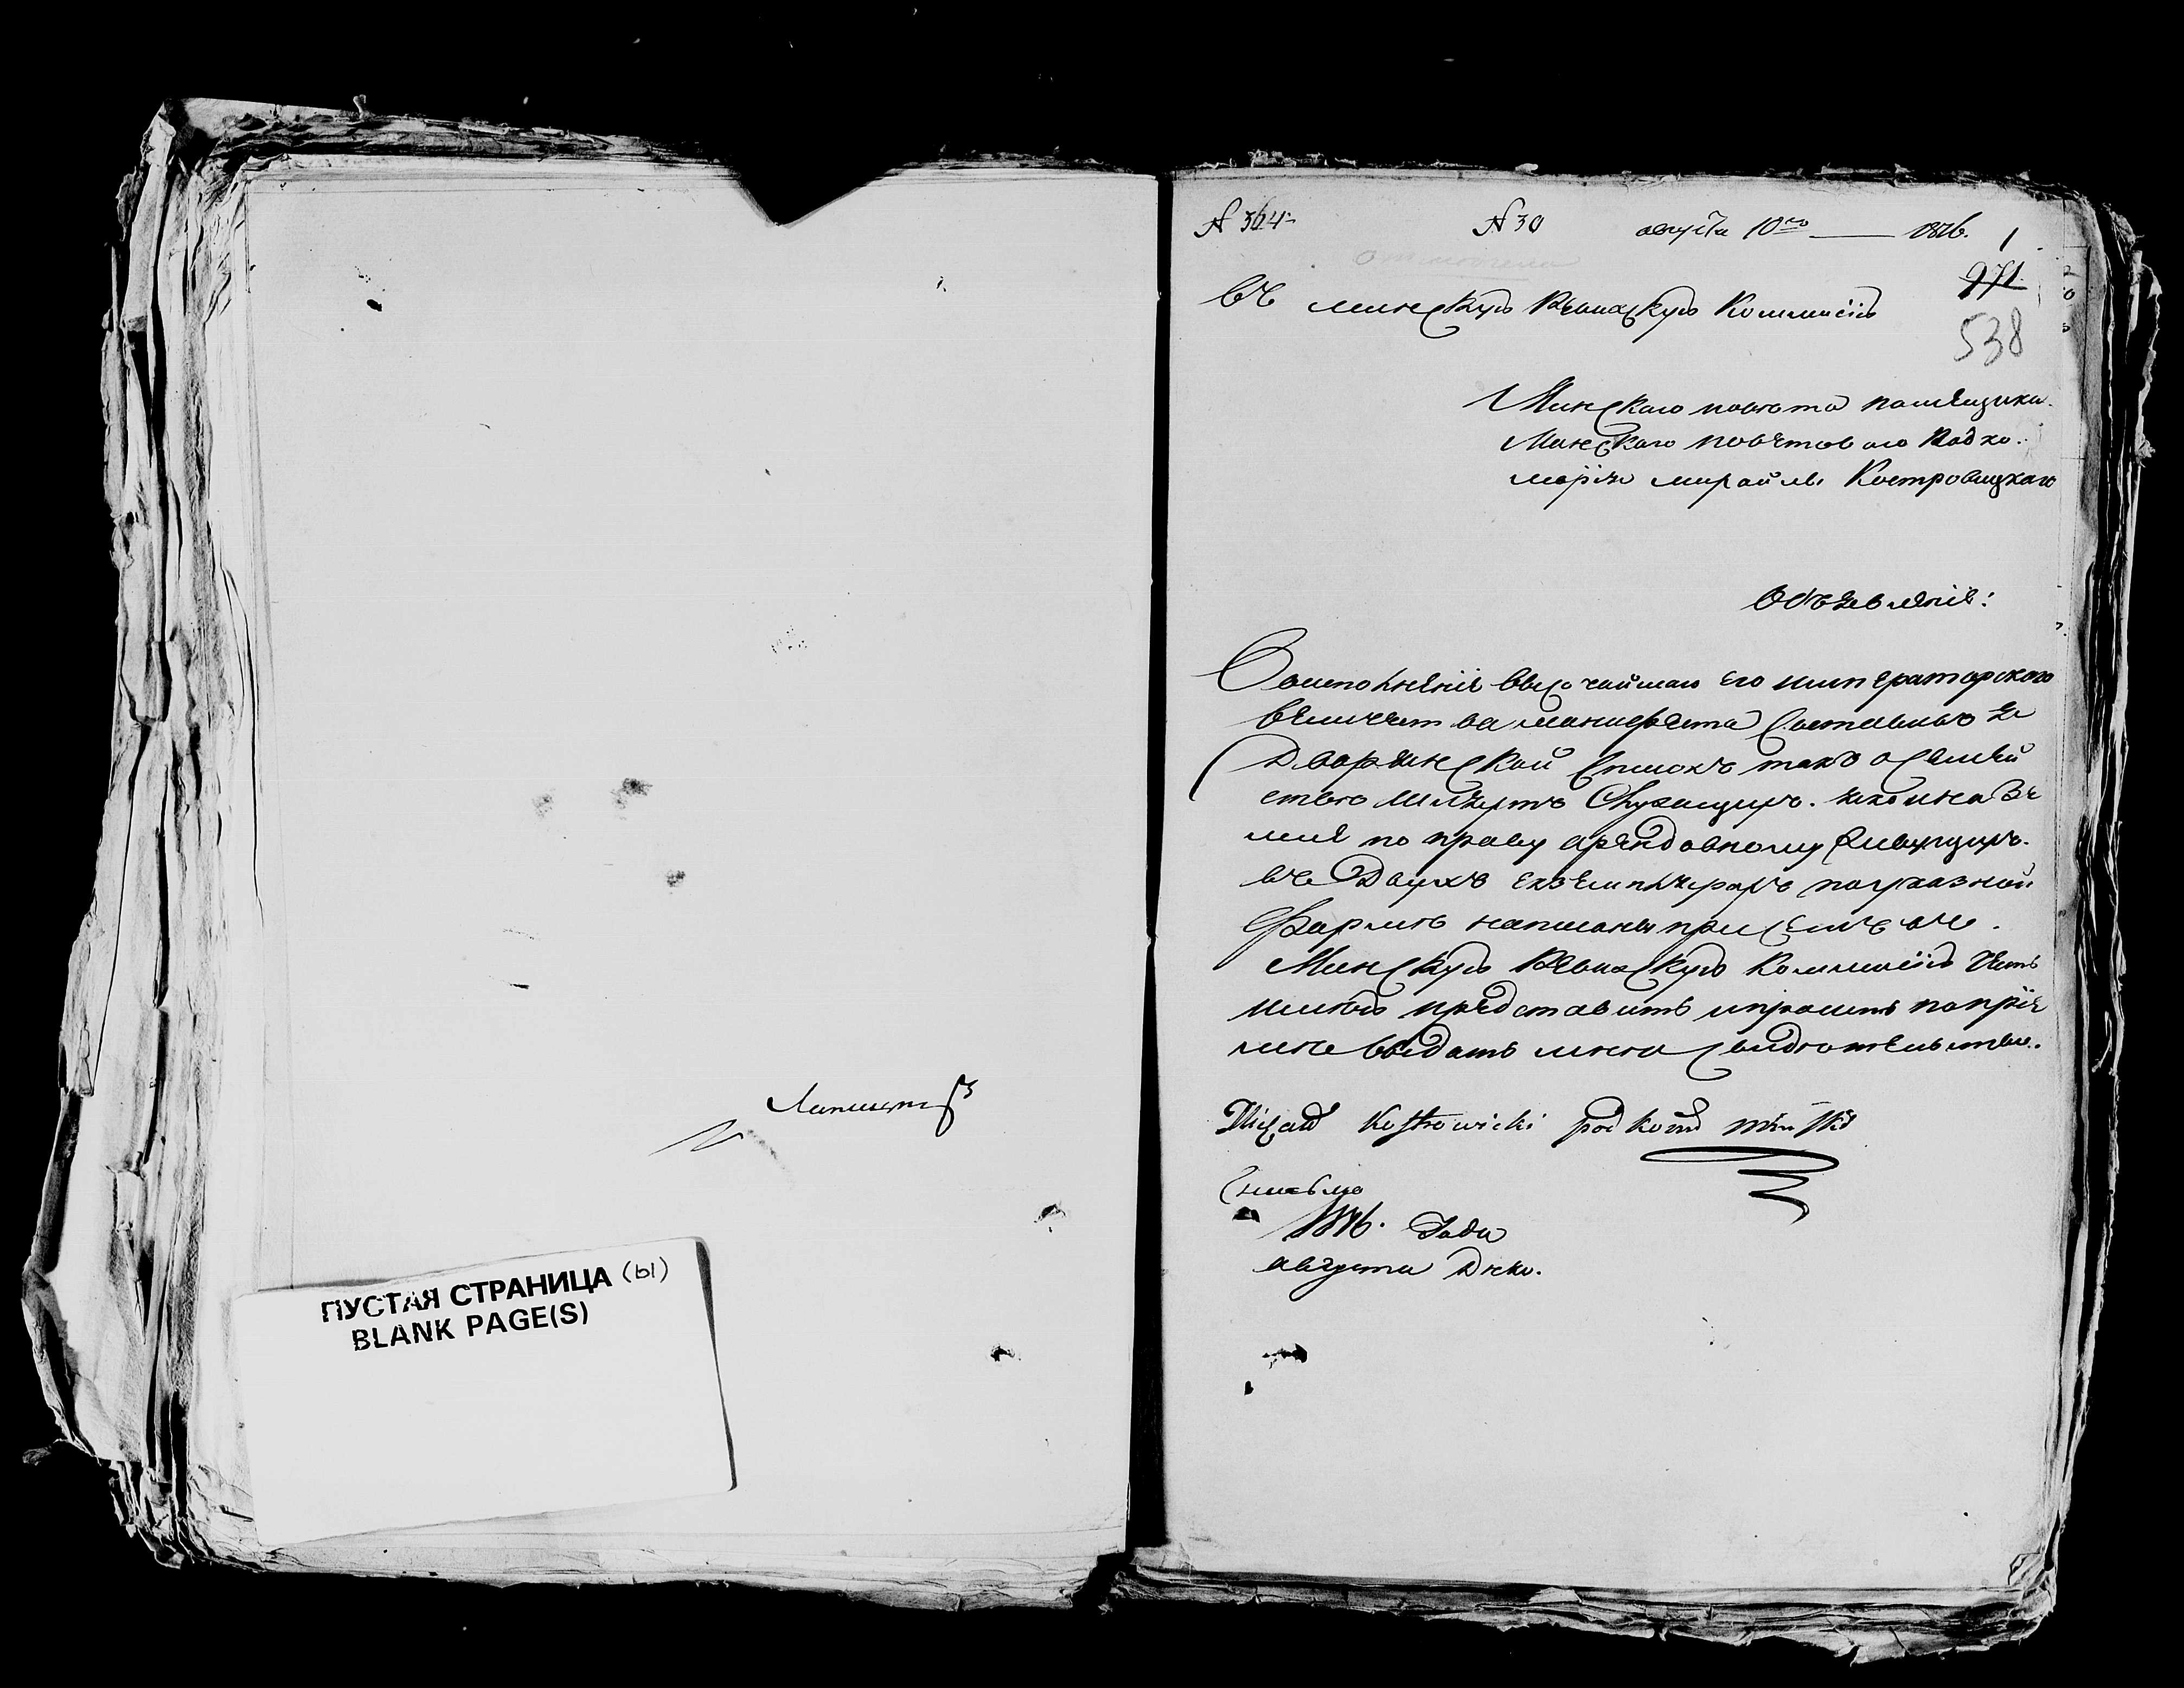 ПУСТАЯ СТРАНИЦА (ы)
BLANK PAGE(S)
№ 364
№ 30 августа 10го 1816. 1
971
538
въ минскую Ревизскую Коммисію
Минскаго повѣта помѣщика
Минскаго повѣтоваго Подко-
морія Михайлы Костровицкаго
Объявленіе:
Воисполненіе высочайшаго его императорскаго
величества манифеста составилъ я
Дворянской списокъ такъ осемей
ствѣ
по праву арендовному
въ Двухъ екземплярахъ поуказной
Формѣ написаны при семъ въ
Минскую Ревизскую Коммисію Честь
имѣю представить ипросить попріе
мѣ выдать мнѣ свидѣтельство.
Michał Kostrowicki podkom miński
1816. Года
августа Дня.